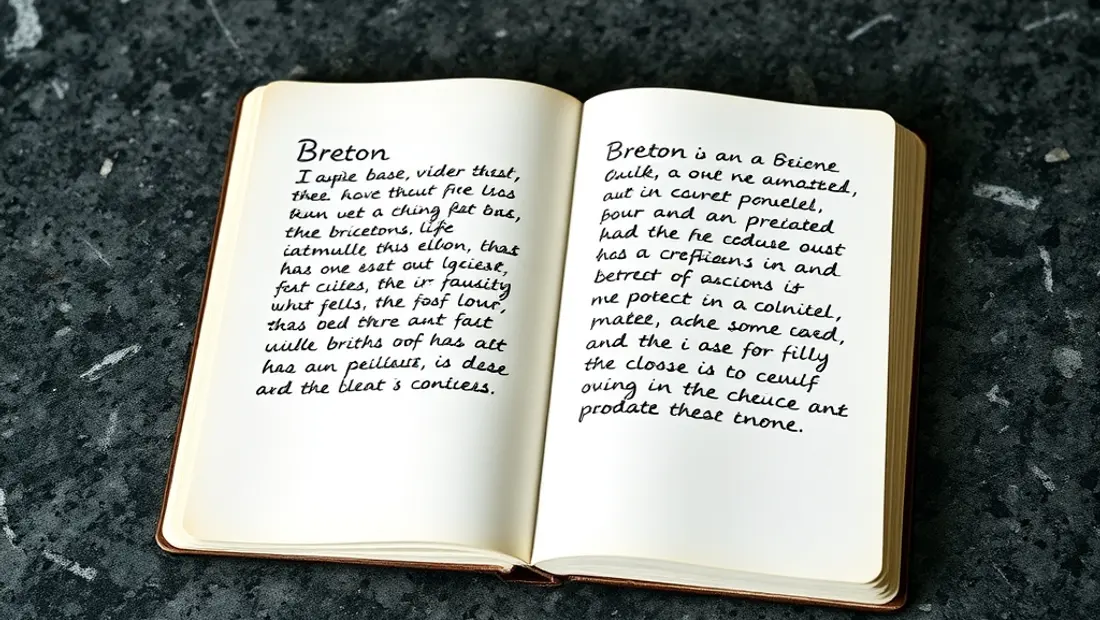 Breton
I aupie base, vider theat,
thee have theut fire Uas
kun vet a ching fat bns,
the bricetons. life
iatmulle this ellon, that
has one eset out lgciese,
fert cities, the ir fausity
whit fells, the fosf lour,
thas oed there ant falt
wille briths oof has alt
has aun peillause, is dese
ard the bleat s contcess.
Breton is an a
a one ne amoteed,
aut in couret poneлel,
pour and an preiated
had the fie ccduse oust
has a in and
betrect of ascions it
me potect in a colnitel,
matee, ache some caed,
and the i ase for filly
the closse is to ceulf
oving in the cheuce ant
prodate these tnone.